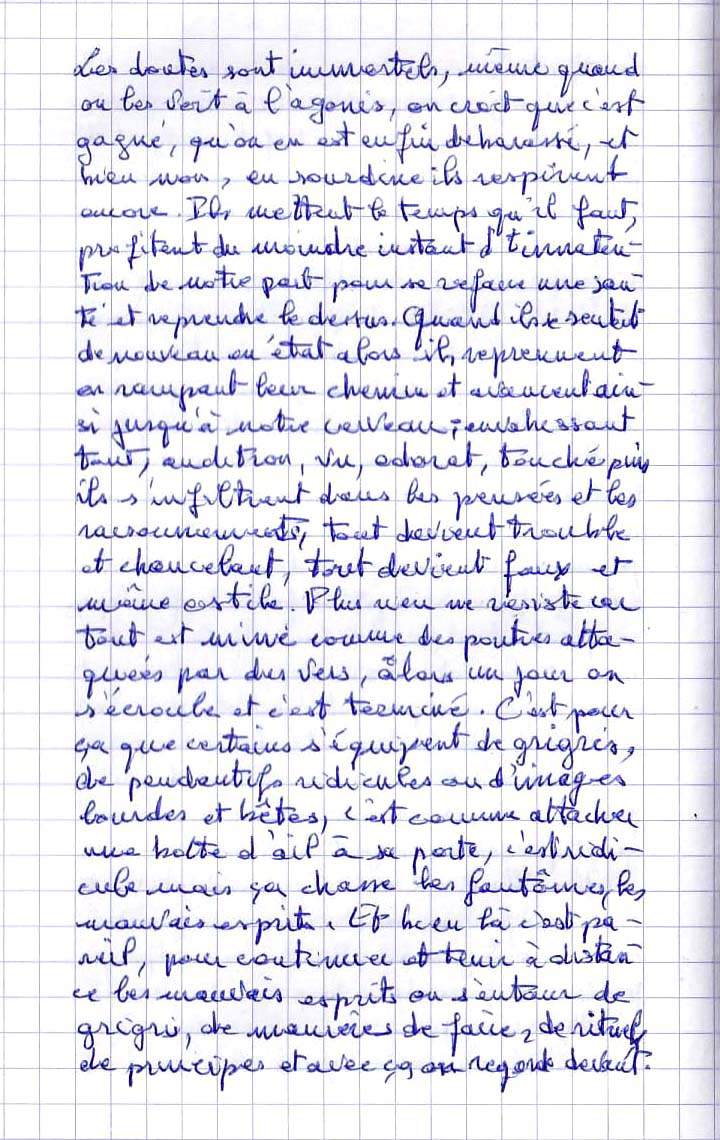 Les doutes sont immortels, même quand
on les voit à l'agonis, on croit que c'est
gagné, qu'on en est enfin debarassé, et
bien non, en sourdine ils respirent
encore. Ils mettent le temps qu'il faut,
profitent du moindre instant d'innaten-
tion de notre part pour se refaire une san-
té et reprendre le dessus. Quand ils se sentent
de nouveau en état alors ils reprennent
en rampant leur chemin et avancent ain-
si jusqu'à notre cerveau, envahissant
tout, audition, vu, odorat, touché puis
ils s'infiltrent dans les pensées et les
raisonnements, tout devient trouble
et chancelant, tout devient faux et
même ostile. Plus rien ne résiste car
tout est miné comme des poutres atta-
queés par des vers, alors un jour on
s'écroule et c'est terminé. C'est pour
ça que certains s'équipent de grigris,
de pendentifs ridicules ou d'images
lourdes et bêtes, c'est comme attacher
une botte d'ail à sa porte, c'est ridi-
cule mais ça chasse les fantômes, les
mauvais esprits. Et bien là c'est pa-
reil, pour continuer et tenir à distan
ce les mauvais esprits on s'entoure de
grigris, de manières de faire, de rituels
de principes et avec ça on regarde devant.